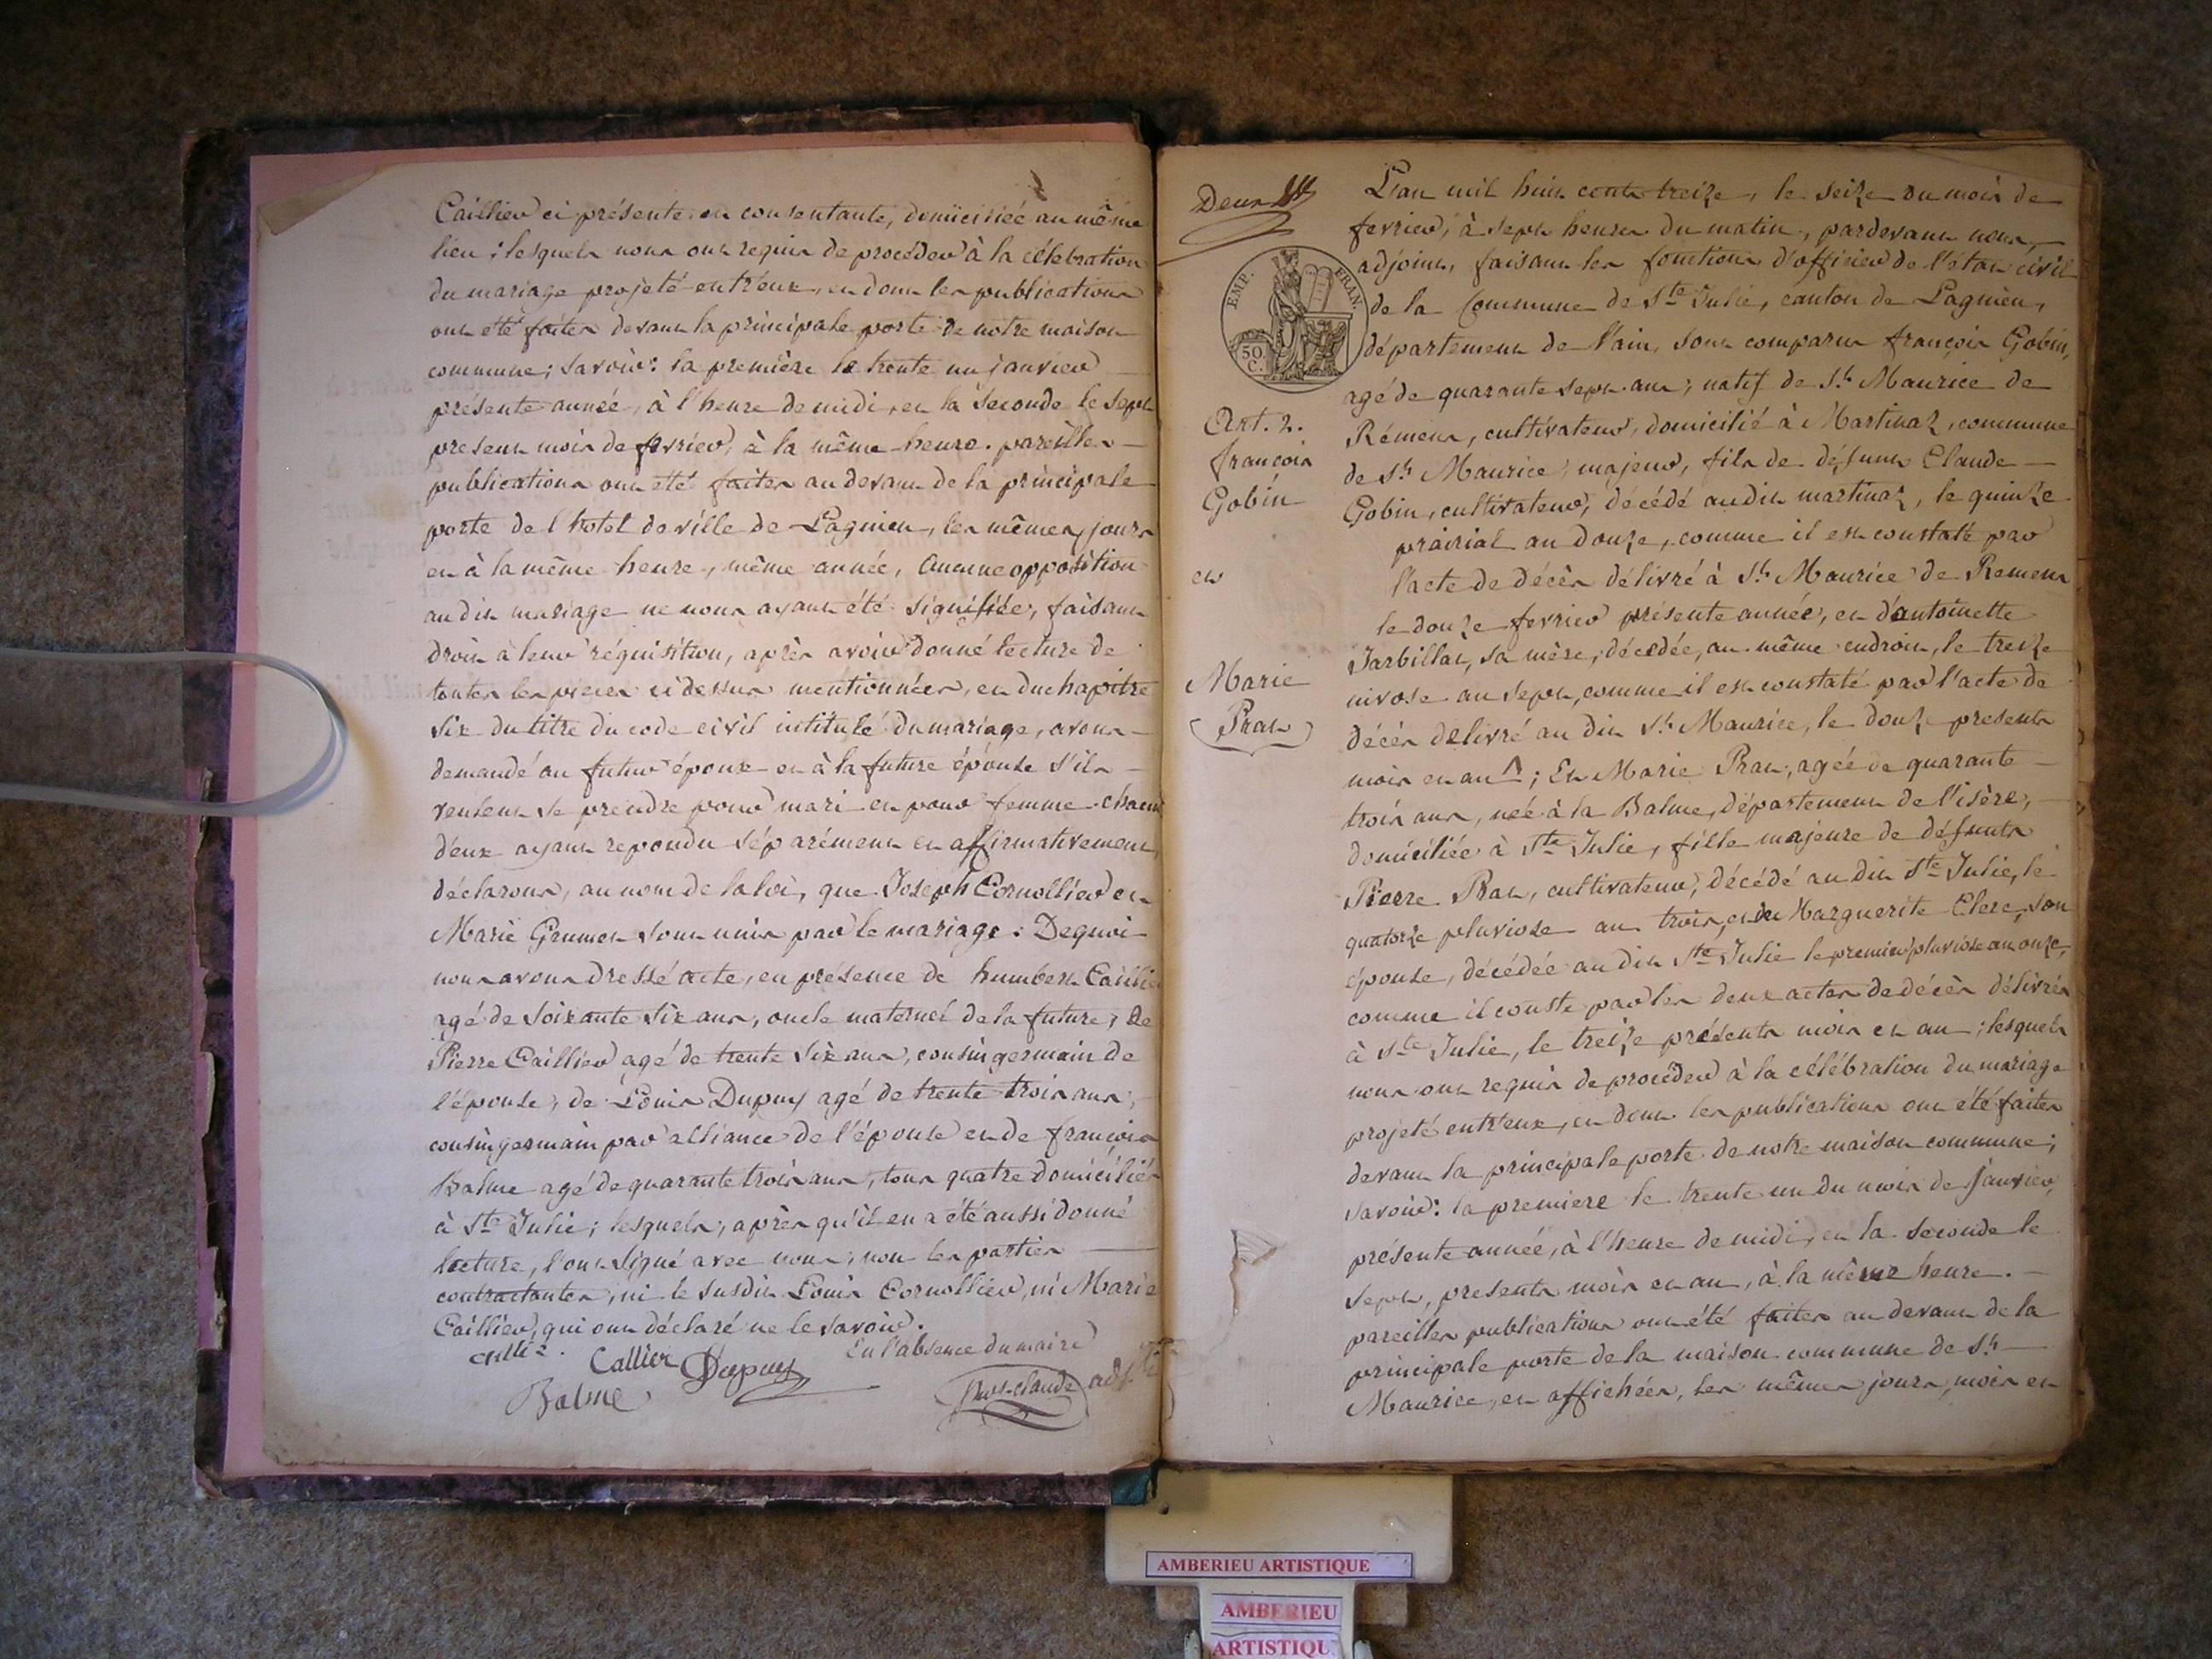 Caillier ci présente et consentante, domiciliée au même
lieu ; lesquels nous ont requis de procéder à la célébration
du mariage projeté entr'eux, et dont les publications
ont été faites devant la principale porte de notre maison
commune ; savoir : la première le trente un janvier
présente année, à l'heure de midi, et la seconde le sept
present mois de fevrier, à la même heure. pareilles
publications ont été faites au devant de la principale
porte de l'hotel de ville de Lagnieu, les mêmes jours
et à la même heure, même année, Aucune opposition
au dit mariage ne nous ayant été signifiée, faisant
droit à leur réquisition, après avoir donné lecture de
toutes les pieces ci dessus mentionnées, et du chapitre
six du titre du code civil intitulé du mariage, avons
demandé au futur époux et à la future épouse s'ils
veulent se prendre pour mari et pour femme. chacun
d'eux ayant repondu séparément et affirmativement,
déclarons, au nom de la loi, que Joseph Cornollier et
Marie Grumet sont unis par le mariage. De quoi
nous avons dressé acte, en présence de humbert Caillier
agé de soixante six ans, oncle maternel de la future, de
Pierre Caillier agé de trente six ans, cousin germain de
l'épouse, de Louis Dupuy agé de trente trois ans,
cousin germain par alliance de l'épouse et de françois
Balme agé de quarante trois ans, tous quatre domiciliés
à Ste Julie ; lesquels, après qu'il en a été aussi donné
lecture, l'ont signé avec nous, non les parties
contractantes, ni le susdit Louis Cornollier, ni Marie
Caillier, qui ont déclaré ne le savoir.
En l'absence du maire
Callier Dupuy
Balme
Deux
EMP. FRAN.
50. C.
Art. 2.
françois
Gobin
et
Marie
Prat
L'an mil huit cent treize, le seize du mois de
fevrier, à sept heures du matin, pardevant nous,
adjoint, faisant les fonctions d'officier de l'état civil
de la Commune de Ste Julie, canton de Lagnieu,
département de l'ain, sont comparus françois Gobin,
agé de quarante sept ans ; natif de St Maurice de
Rémens, cultivateur, domicilié à Martinaz, commune
de St Maurice, majeur, fils de défunt Claude
Gobin, cultivateur, décédé audit martinaz, le quinze
prairial an douze, comme il est constaté par
l'acte de décès délivré à St Maurice de Remens
le douze fevrier présente année, et d'antoinette
Jarbillat, sa mère, décédée, au même endroit, le treize
nivose an sept, comme il est constaté par l'acte de
décès delivré au dit St Maurice, le douze presents
mois et an ; Et Marie Prat, agée de quarante
trois ans, née à la Balme, département de l'isère,
domiciliée à Ste Julie, fille majeure de défunts
Pierre Prat, cultivateur, décédé au dit Ste Julie, le
quatorze pluviose an trois, et de Marguerite Clerc, son
épouse, décédée au dit Ste Julie le premier pluviose an onze,
comme il conste par les deux actes de décès délivrés
à Ste Julie, le treize présents mois et an ; lesquels
nous ont requis de procéder à la célébration du mariage
projeté entr'eux, et dont les publications ont été faites
devant la principale porte de notre maison commune ;
savoir : la premiere le trente un du mois de janvier,
présente année, à l'heure de midi, et la seconde le
sept, presents mois et an, à la même heure.
pareilles publications ont été faites au devant de la
principale porte de la maison commune de St
Maurice, et affichées, les mêmes jours, mois et
AMBERIEU ARTISTIQUE
AMBERIEU
ARTISTIQU